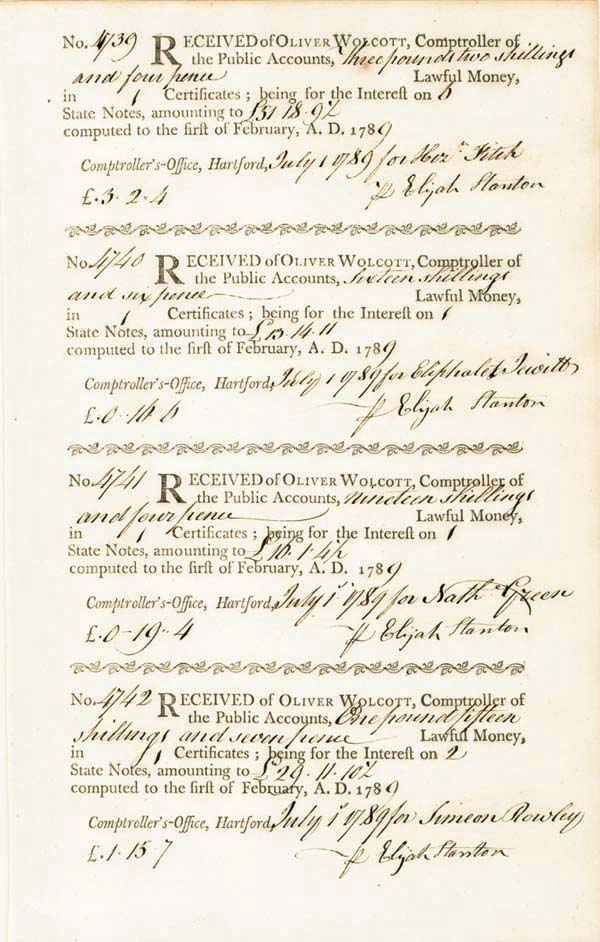 No. 4739 RECEIVED of OLIVER WOLCOTT, Comptroller of
the Public Accounts, three pounds two shillings
and four pence Lawful Money,
in 1 Certificates; being for the Intereſt on 6
State Notes, amounting to £51 18. 9½
computed to the firſt of February, A. D. 1789
Comptroller's-Office, Hartford, July 1 1789 for Hez.h Fitch
£. 3. 2. 4 ⅌ Elijah Stanton
No. 4740 RECEIVED of OLIVER WOLCOTT, Comptroller of
the Public Accounts, Sixteen shillings
and six pence Lawful Money,
in 1 Certificates; being for the Intereſt on 1
State Notes, amounting to £13. 14. 11
computed to the firſt of February, A. D. 1789
Comptroller's-Office, Hartford, July 1 1789 for Eliphalet Jewitt
£. 0. 16 6 ⅌ Elijah Stanton
No. 4741 RECEIVED of OLIVER WOLCOTT, Comptroller of
the Public Accounts, nineteen shillings
and four pence Lawful Money,
in 1 Certificates; being for the Intereſt on 1
State Notes, amounting to £16. 1. 4½
computed to the firſt of February, A. D. 1789
Comptroller's-Office, Hartford, July 1st 1789 for Nath Green
£. 0 - 19. 4 ⅌ Elijah Stanton
No. 4742 RECEIVED of OLIVER WOLCOTT, Comptroller of
the Public Accounts, One pound fifteen
shillings and seven pence Lawful Money,
in 1 Certificates; being for the Intereſt on 2
State Notes, amounting to £29. 11. 10½
computed to the firſt of February, A. D. 1789
Comptroller's-Office, Hartford, July 1st 1789 for Simeon Rowley
£. 1. 15. 7 ⅌ Elijah Stanton